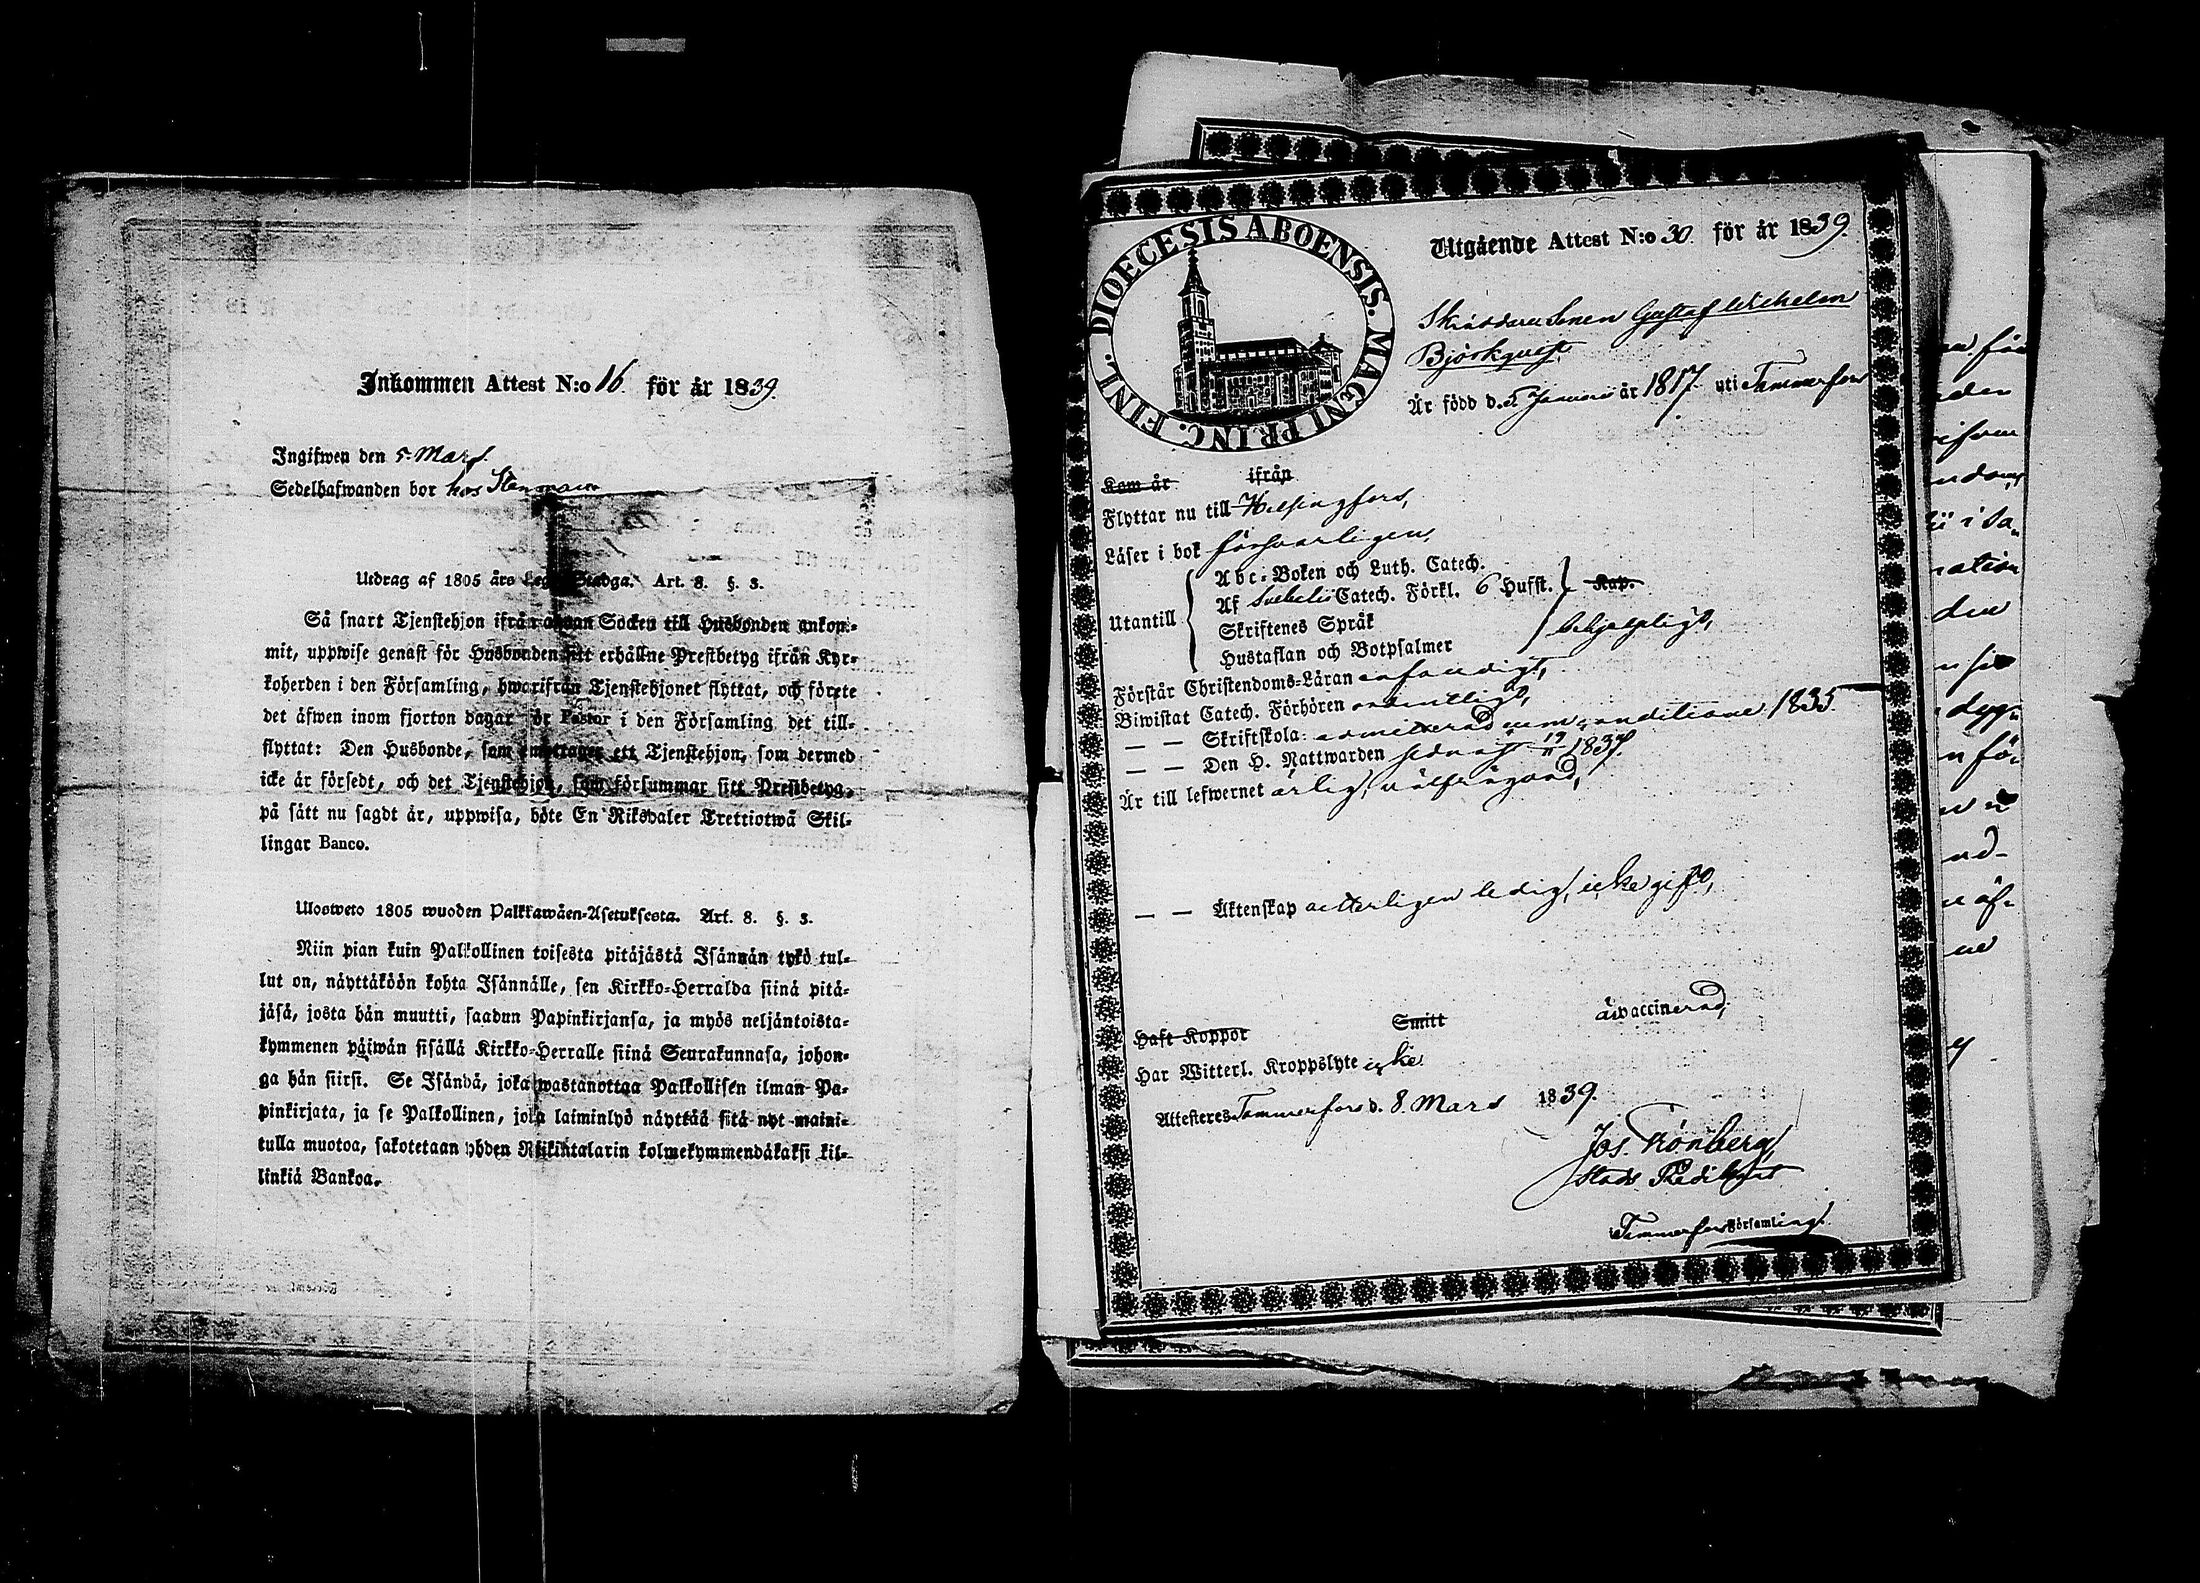 Inkommen Attest N:o 16. för år 1839.
Ingifwen den 5. Mars
Sedelhafwanden bor hos Stenman
Utdrag af 1805 års Lego-Stadga. Art. 8. §. 3.
Så snart Tjenstehjon ifrån annan Socken till Husbonden ankom-
mit, uppwise genast för Husbonden sitt erhållne Prestbetyg ifrån Kyr-
koherden i den Församling, hwarifrån Tjenstehjonet flyttat, och förete
det äfwen inom fjorton dagar för Pastor i den Församling det till-
flyttat: Den Husbonde, som emottager ett Tjenstehjon, som dermed
icke är försedt, och det Tjenstehjon, som försummar sitt Prestbetyg,
på sätt nu sagdt är, uppwisa, böte En Riksdaler Trettiotwå Skil-
lingar Banco.
Ulosweto 1805 wuoden Palkkawäen-Asetuksesta. Art. 8. §. 3.
Niin pian kuin Palkollinen toisesta pitäjästä Isännän tykö tul-
lut on, näyttäköön kohta Isännälle, sen Kirkko-Herralda siinä pitä-
jäsä, josta hän muutti, saadun Papinkirjansa, ja myös neljäntoista-
kymmenen päiwän sisällä Kirkko-Herralle siinä Seurakunnasa, johon-
ga hän siirsi. Se Isändä, joka wastanottaa Palkollisen ilman Pa-
pinkirjata, ja se Palkollinen, joka laiminlyö näyttää sitä nyt maini-
tulla muotoa, sakotetaan yhden Riikintalarin kolmekymmendäkaksi kil-
linkiä Bankoa.
DIOECESIS ABOENSIS. MAGNI PRINC. FINL.
Utgående Attest N:o 30. för år 1839.
Skräddare Sonen Gustaf Wilhelm
Björkqvist
Är född d. 5 Januarii år 1817. uti Tammerfors
Kom år ifrån
Flyttar nu till Helsingfors,
Läser i bok försvarligen,
Utantill
Abc-Boken och Luth. Catech.
Af Svebelii Catech. Förkl. 6 Hufst. Kap.
Skriftenes Språk
Hustaflan och Botpsalmer
behjelpligt,
Förstår Christendoms-Läran enfaldigt,
Biwistat Catech. Förhören ordentligt,
— — Skriftskola: admitterad cum conditione 1835
— — Den H. Nattwarden sednast 19/11 1837.
Är till lefwernet ärlig, välfrägdad,
— — Äktenskap ledig, icke gift,
Haft Koppor Smitt är vaccinerad,
Har Witterl. Kroppslyte icke
Attesteres Tammerfors d. 8. Mars 1839.
Jos. Grönberg,
Stads Prédikant
i Tammerfors Församling.